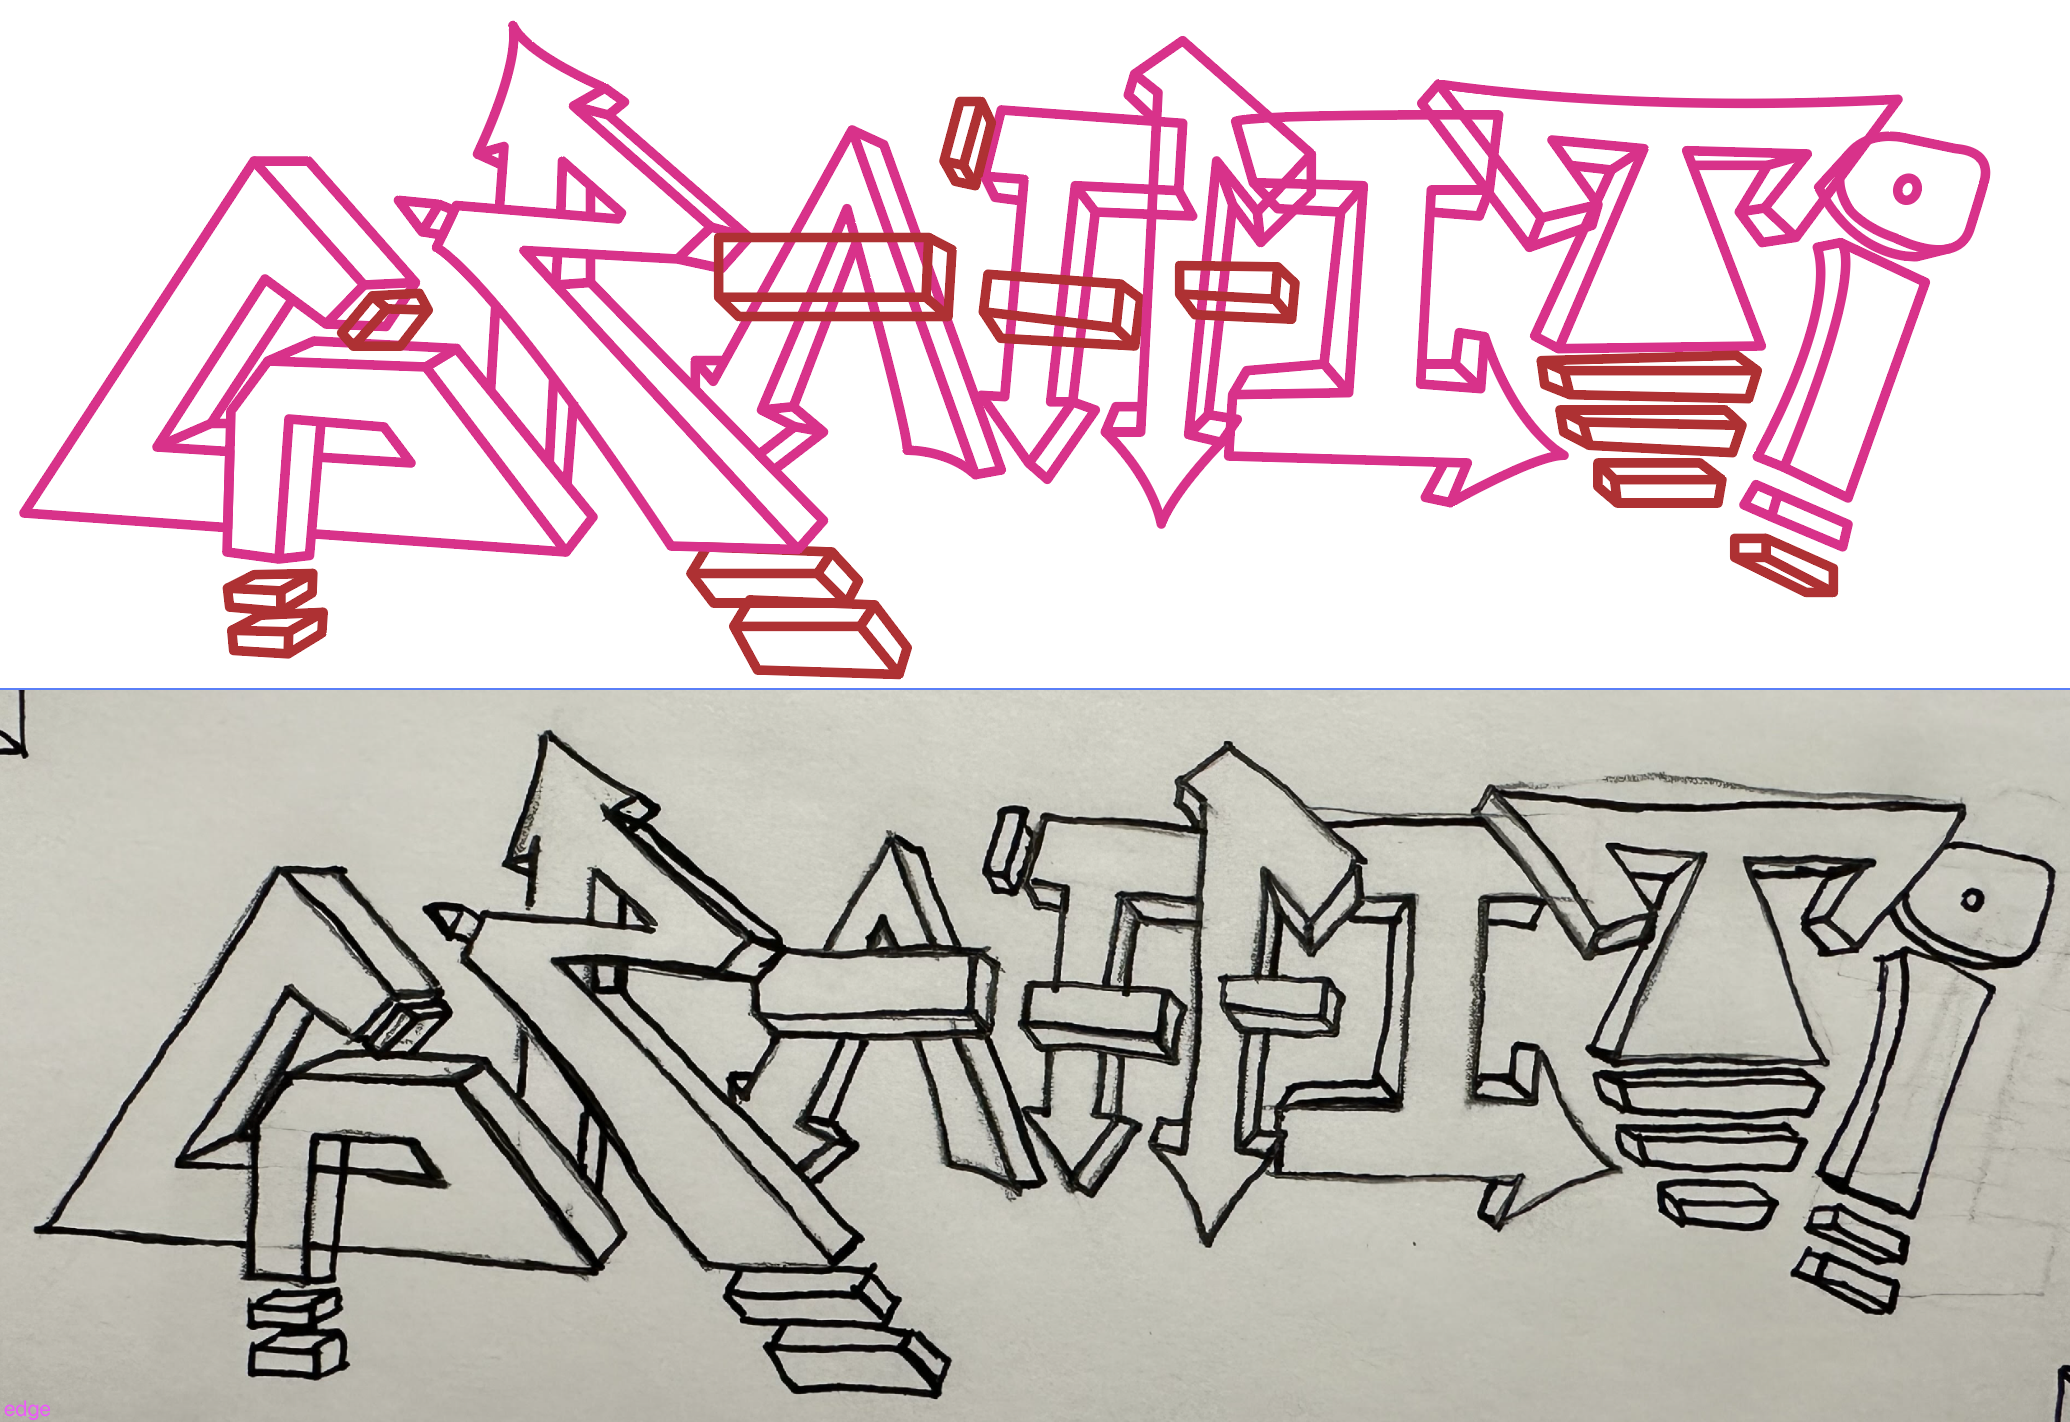 GRAFFITi
GRAFFITi
edge